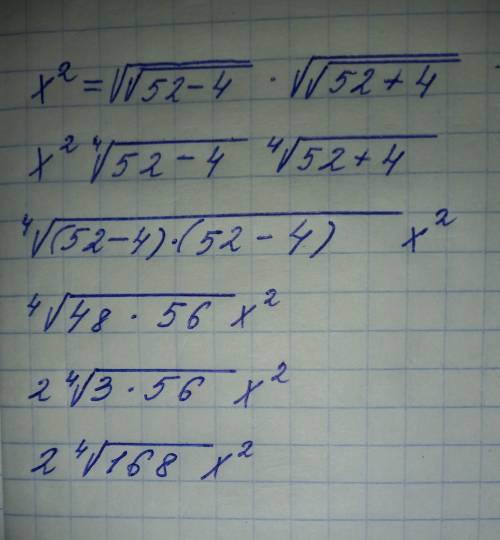 x² = √√52 - 4 · √√52 + 4
x² ⁴√52 - 4 ⁴√52 + 4
⁴√(52-4)·(52-4) x²
⁴√48 · 56 x²
2 ⁴√3 · 56 x²
2 ⁴√168 x²